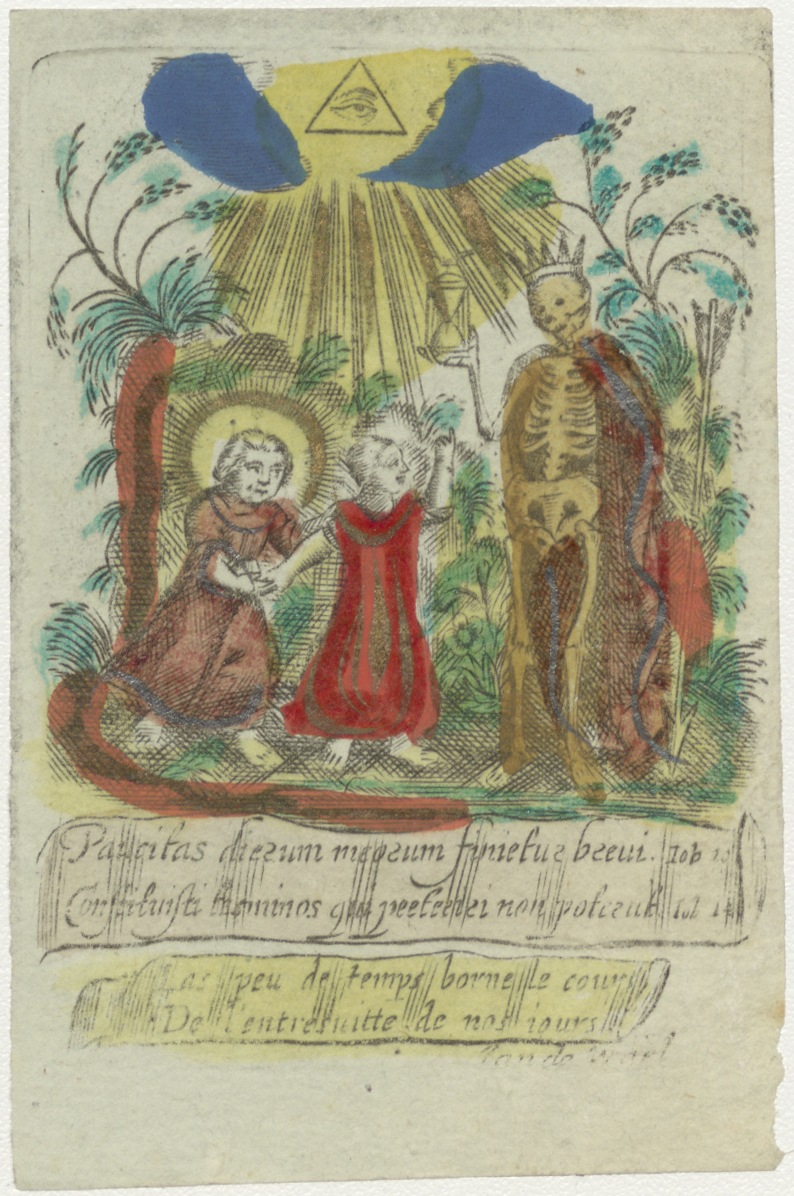 Paucitas dierum meorum finietur breui. Iob 10
Constituisti terminos qui preteriri non poterunt Iob 14
Las peu de temps borne le cours
De l'entresuitte de nos iours
Ian de